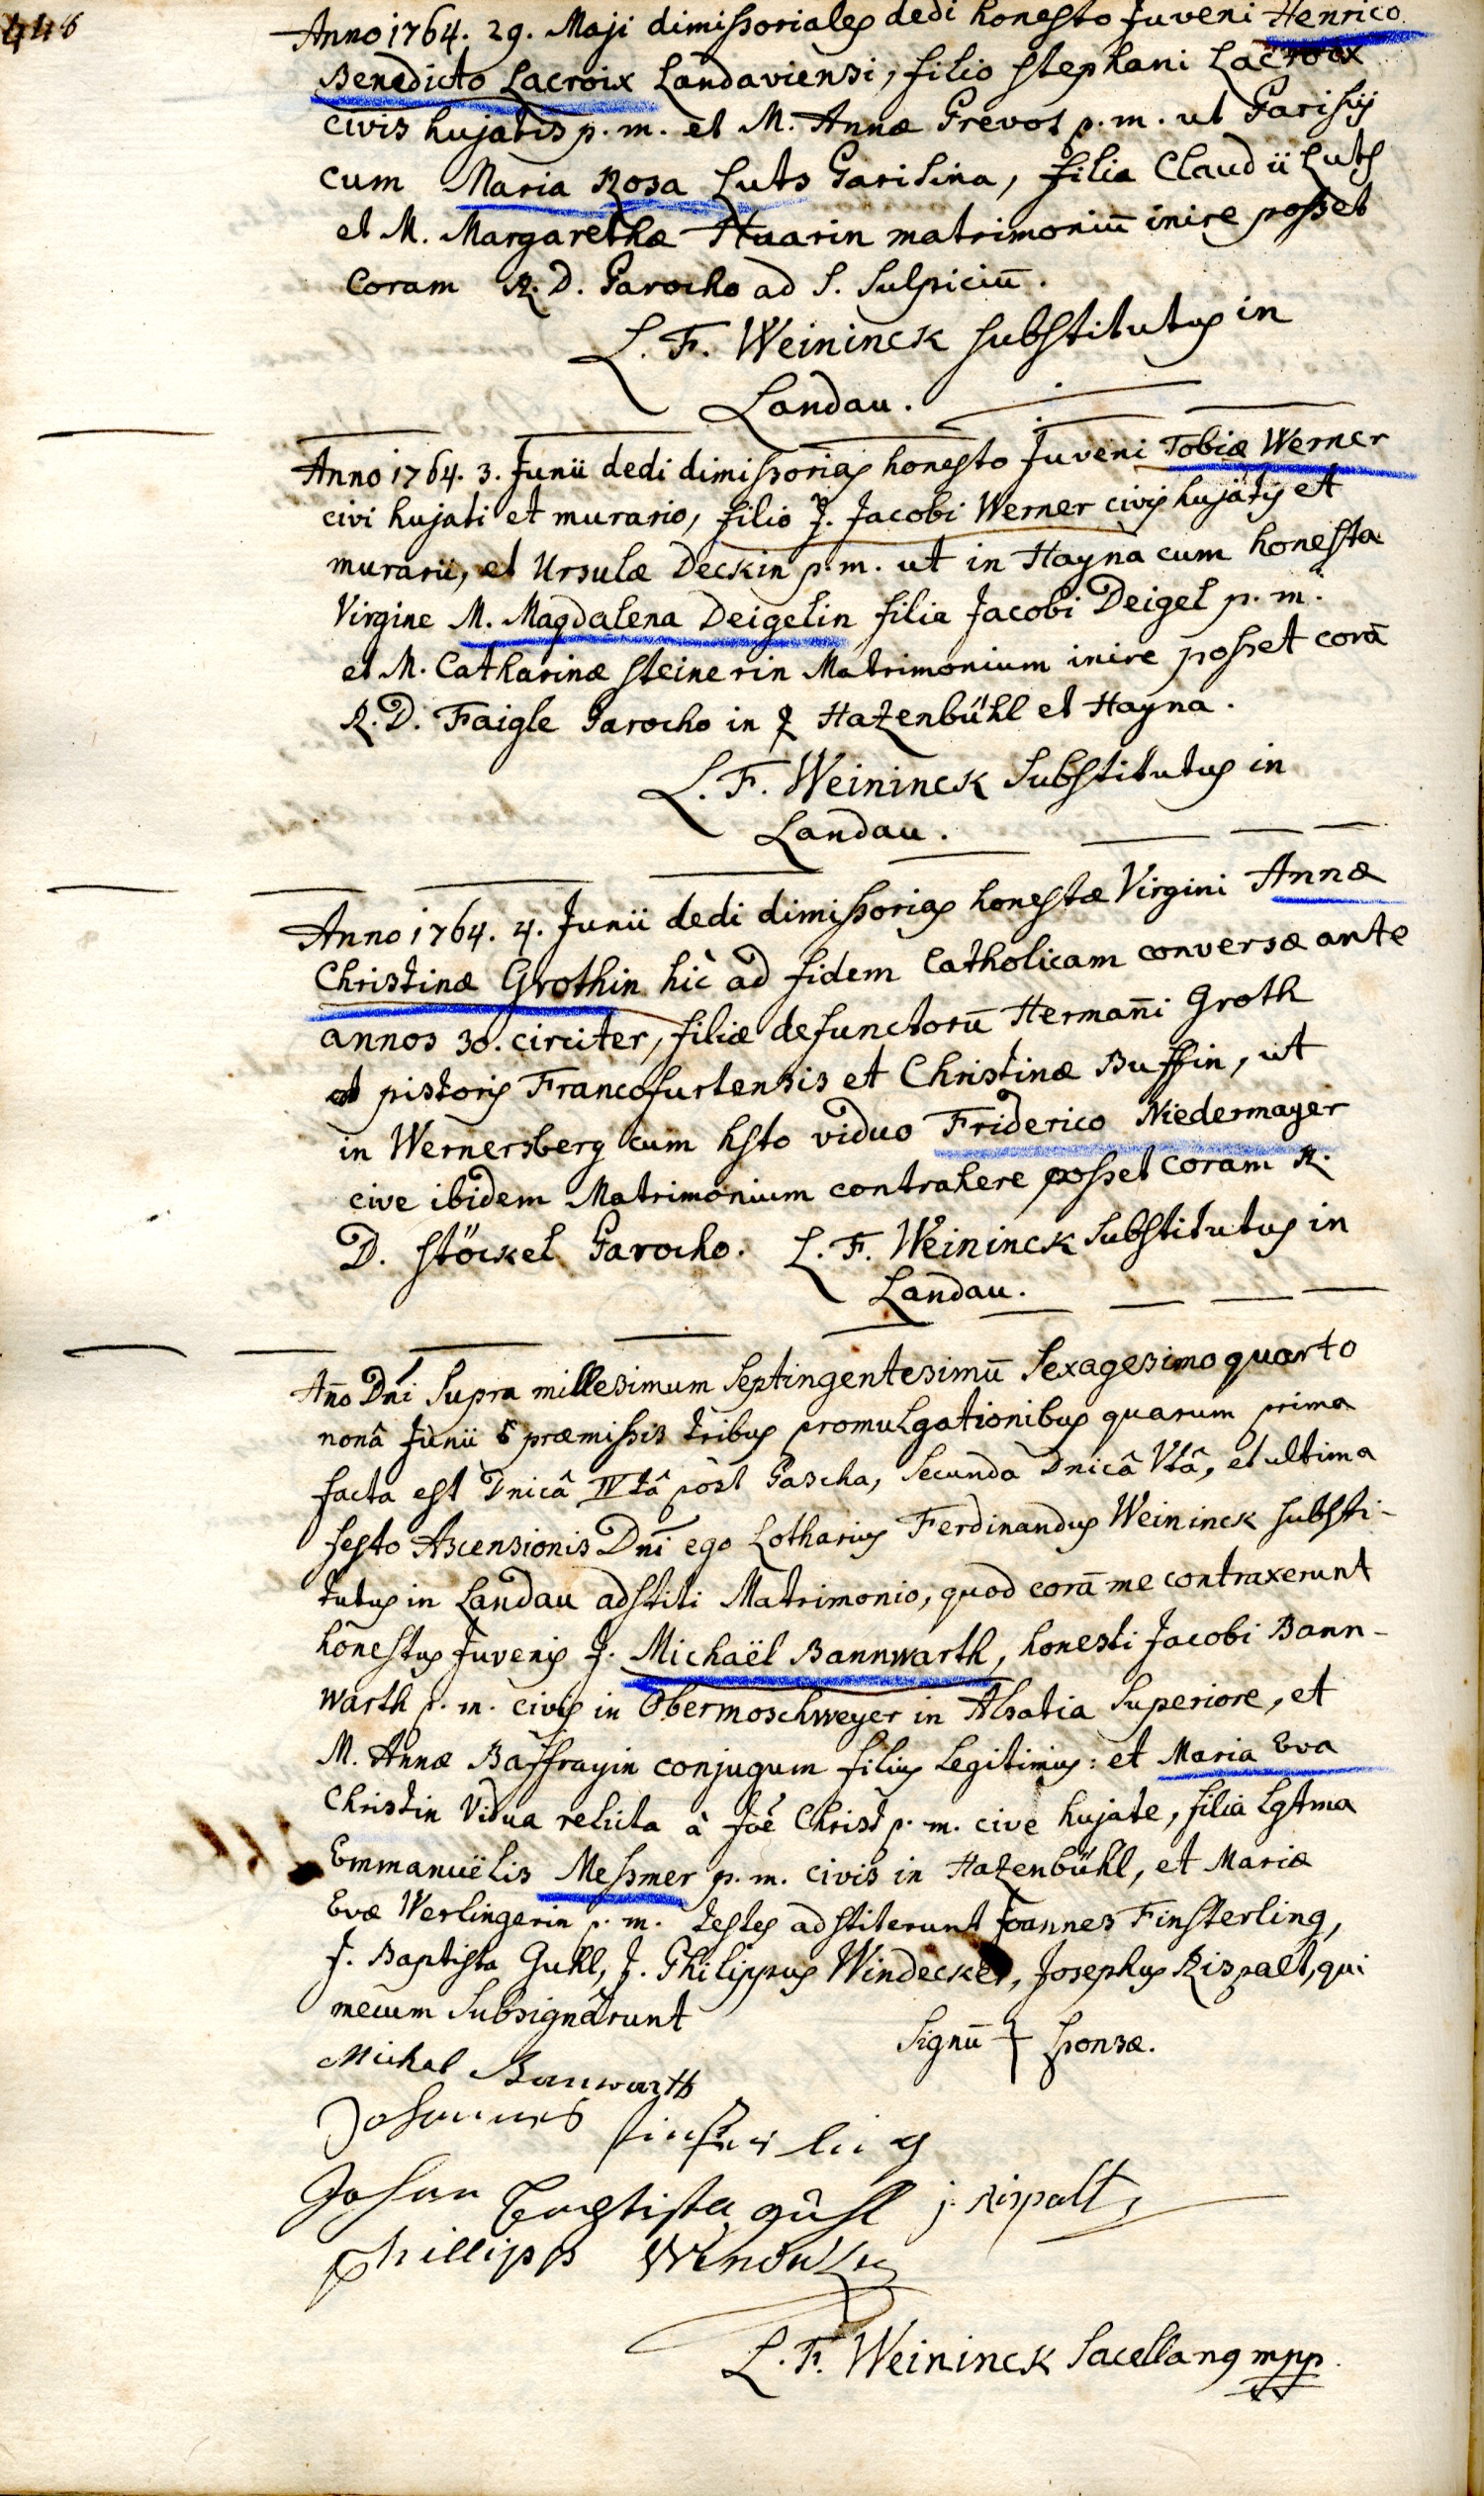 Anno 1764. 29. Maji dimissoriales dedi honesto Juveni Henrico
Benedicto Lacroix Landaviensi, filio Stephani Lacroix
civis hujatis p. m. et M. Annæ Prevot p. m. ut Parisiis
cum Maria Rosa Luts Parisina, filia Claudii Luts
et M. Margarethæ Huarin matrimoniū inire posset
coram R. D. Parocho ad S. Sulpiciū.
L. F. Weininck substitutus in
Landau.
Anno 1764. 3. Junii dedi dimissorias honesto Juveni Tobiæ Werner
civi hujati et murario, filio J. Jacobi Werner civis hujatis et
murarii, et Ursulæ Deckin p. m. ut in Hayna cum honesta
Virgine M. Magdalena Deigelin filia Jacobi Deigel p. m.
et M. Catharinæ Steinerin Matrimonium inire posset corā
R. D. Faigle Parocho in Hazenbühl et Hayna.
L. F. Weininck Substitutus in
Landau.
Anno 1764. 4. Junii dedi dimissorias honestæ Virgini Annæ
Christinæ Grothin hic ad fidem Catholicam conversæ ante
annos 30. circiter, filiæ defunctorū Hermañi Groth
pistoris Francofurtensis et Christinæ Buffin, ut
in Wernersberg cum hsto viduo Friderico Niedermayer
cive ibidem Matrimonium contrahere posset coram R.
D. Stöckel Parocho. L. F. Weininck Substitutus in
Landau.
Año Dñi Supra millesimum Septingentesimū Sexagesimo quarto
nonâ Junii præmissis tribus promulgationibus quarum prima
facta est Dnicâ IVtâ post Pascha, Secunda Dnicâ Vtâ, et ultima
festo Ascensionis Dñi ego Lotharius Ferdinandus Weininck substi-
tutus in Landau adstiti Matrimonio, quod corā me contraxerunt
honestus Juvenis J. Michaël Bannwarth, honesti Jacobi Bann-
warth p. m. civis in Obermoschweyer in Alsatia Superiore, et
M. Annæ Baffrayin conjugum filius legitimus: et Maria Eva
Christin Vidua relicta à Joē Christ p. m. cive hujate, filia lgtma
Emmanuëlis Messmer p. m. civis in Hazenbühl, et Mariæ
Evæ Werlingerin p. m. testes adstiterunt Joannes Finsterling,
J. Baptista Guhl, J. Philippus Windecker, Josephus Rispalt, qui
mecum Subsignârunt
Signū + sponsæ.
Michal Banwarth
Johannes finsterling
Johan Baptista gühl j. Rispalt
Phillipp
L. F. Weininck Sacellanus mpp.